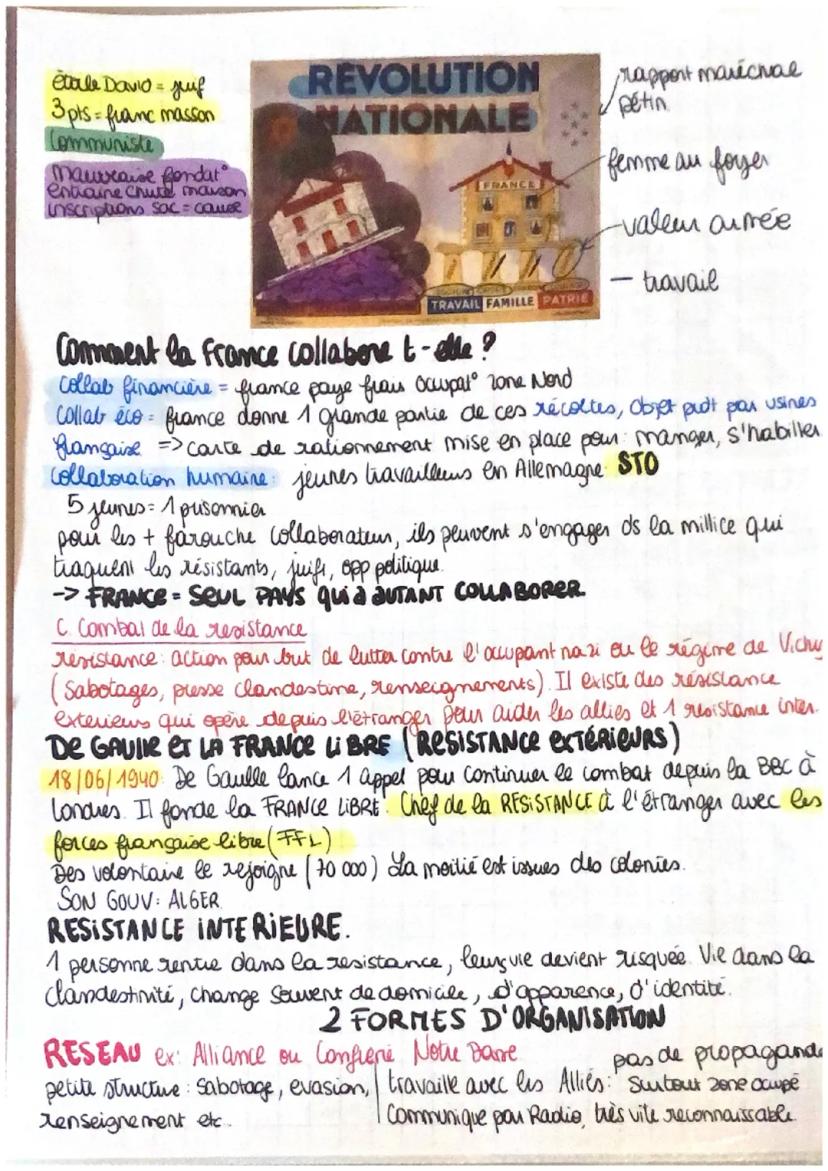 étoile David = juif
3 pts = franc masson
Communiste
Mauvaise fondat°
entraine chute maison
inscriptions sac = cause
REVOLUTION
NATIONALE
FRANCE
TRAVAIL FAMILLE PATRIE
rapport maréchal
pétin
femme au foyer
valeur armée
— travail
Comment la France collabore t-elle ?
Collab financière = france paye frais Ocupat° zone Nord
Collab éco = france donne 1 grande partie de ces récoltes, Objet pudt par usines
française => carte de rationnement mise en place pour : manger, s'habiller
Collaboration humaine : jeunes travailleurs en Allemagne STO
5 jeunes = 1 prisonnier
pour les + farouche collaborateur, ils peuvent s'engager ds la milice qui
traquent les résistants, juifs, opp politique.
-> FRANCE = SEUL PAYS qui a AUTANT COLLABORER
C. Combat de la resistance
résistance : action pour but de lutter contre l'occupant nazi ou le régime de Vichy
(Sabotages, presse clandestine, renseignements). Il existe des résistance
exterieurs qui opère depuis l'étranger pour aider les allies et 1 resistance inter.
DE GAULLE ET LA FRANCE LIBRE (RESISTANCE EXTÉRIEURS)
18/06/1940 : De Gaulle lance 1 appel pour continuer le combat depuis la BBC à
Londres. Il fonde la FRANCE LIBRE. Chef de la RESISTANCE à l'étranger avec les
forces française libre (FFL)
Des volontaire le rejoigne (70 000) La moitié est issues des colonies.
SON GOUV : ALGER
RESISTANCE INTERIEURE.
1 personne rentre dans la resistance, leurs vie devient risquée. Vie dans la
clandestinité, change souvent de domicile, d'apparence, d'identité.
2 FORMES D'ORGANISATION
RESEAU ex : Alliance ou Confrerie Notre Dame
pas de propagande
petite structure : Sabotage, evasion, travaille avec les Alliés : Surtout zone ocupé
renseignement etc. Communique par Radio, très vite reconnaissable